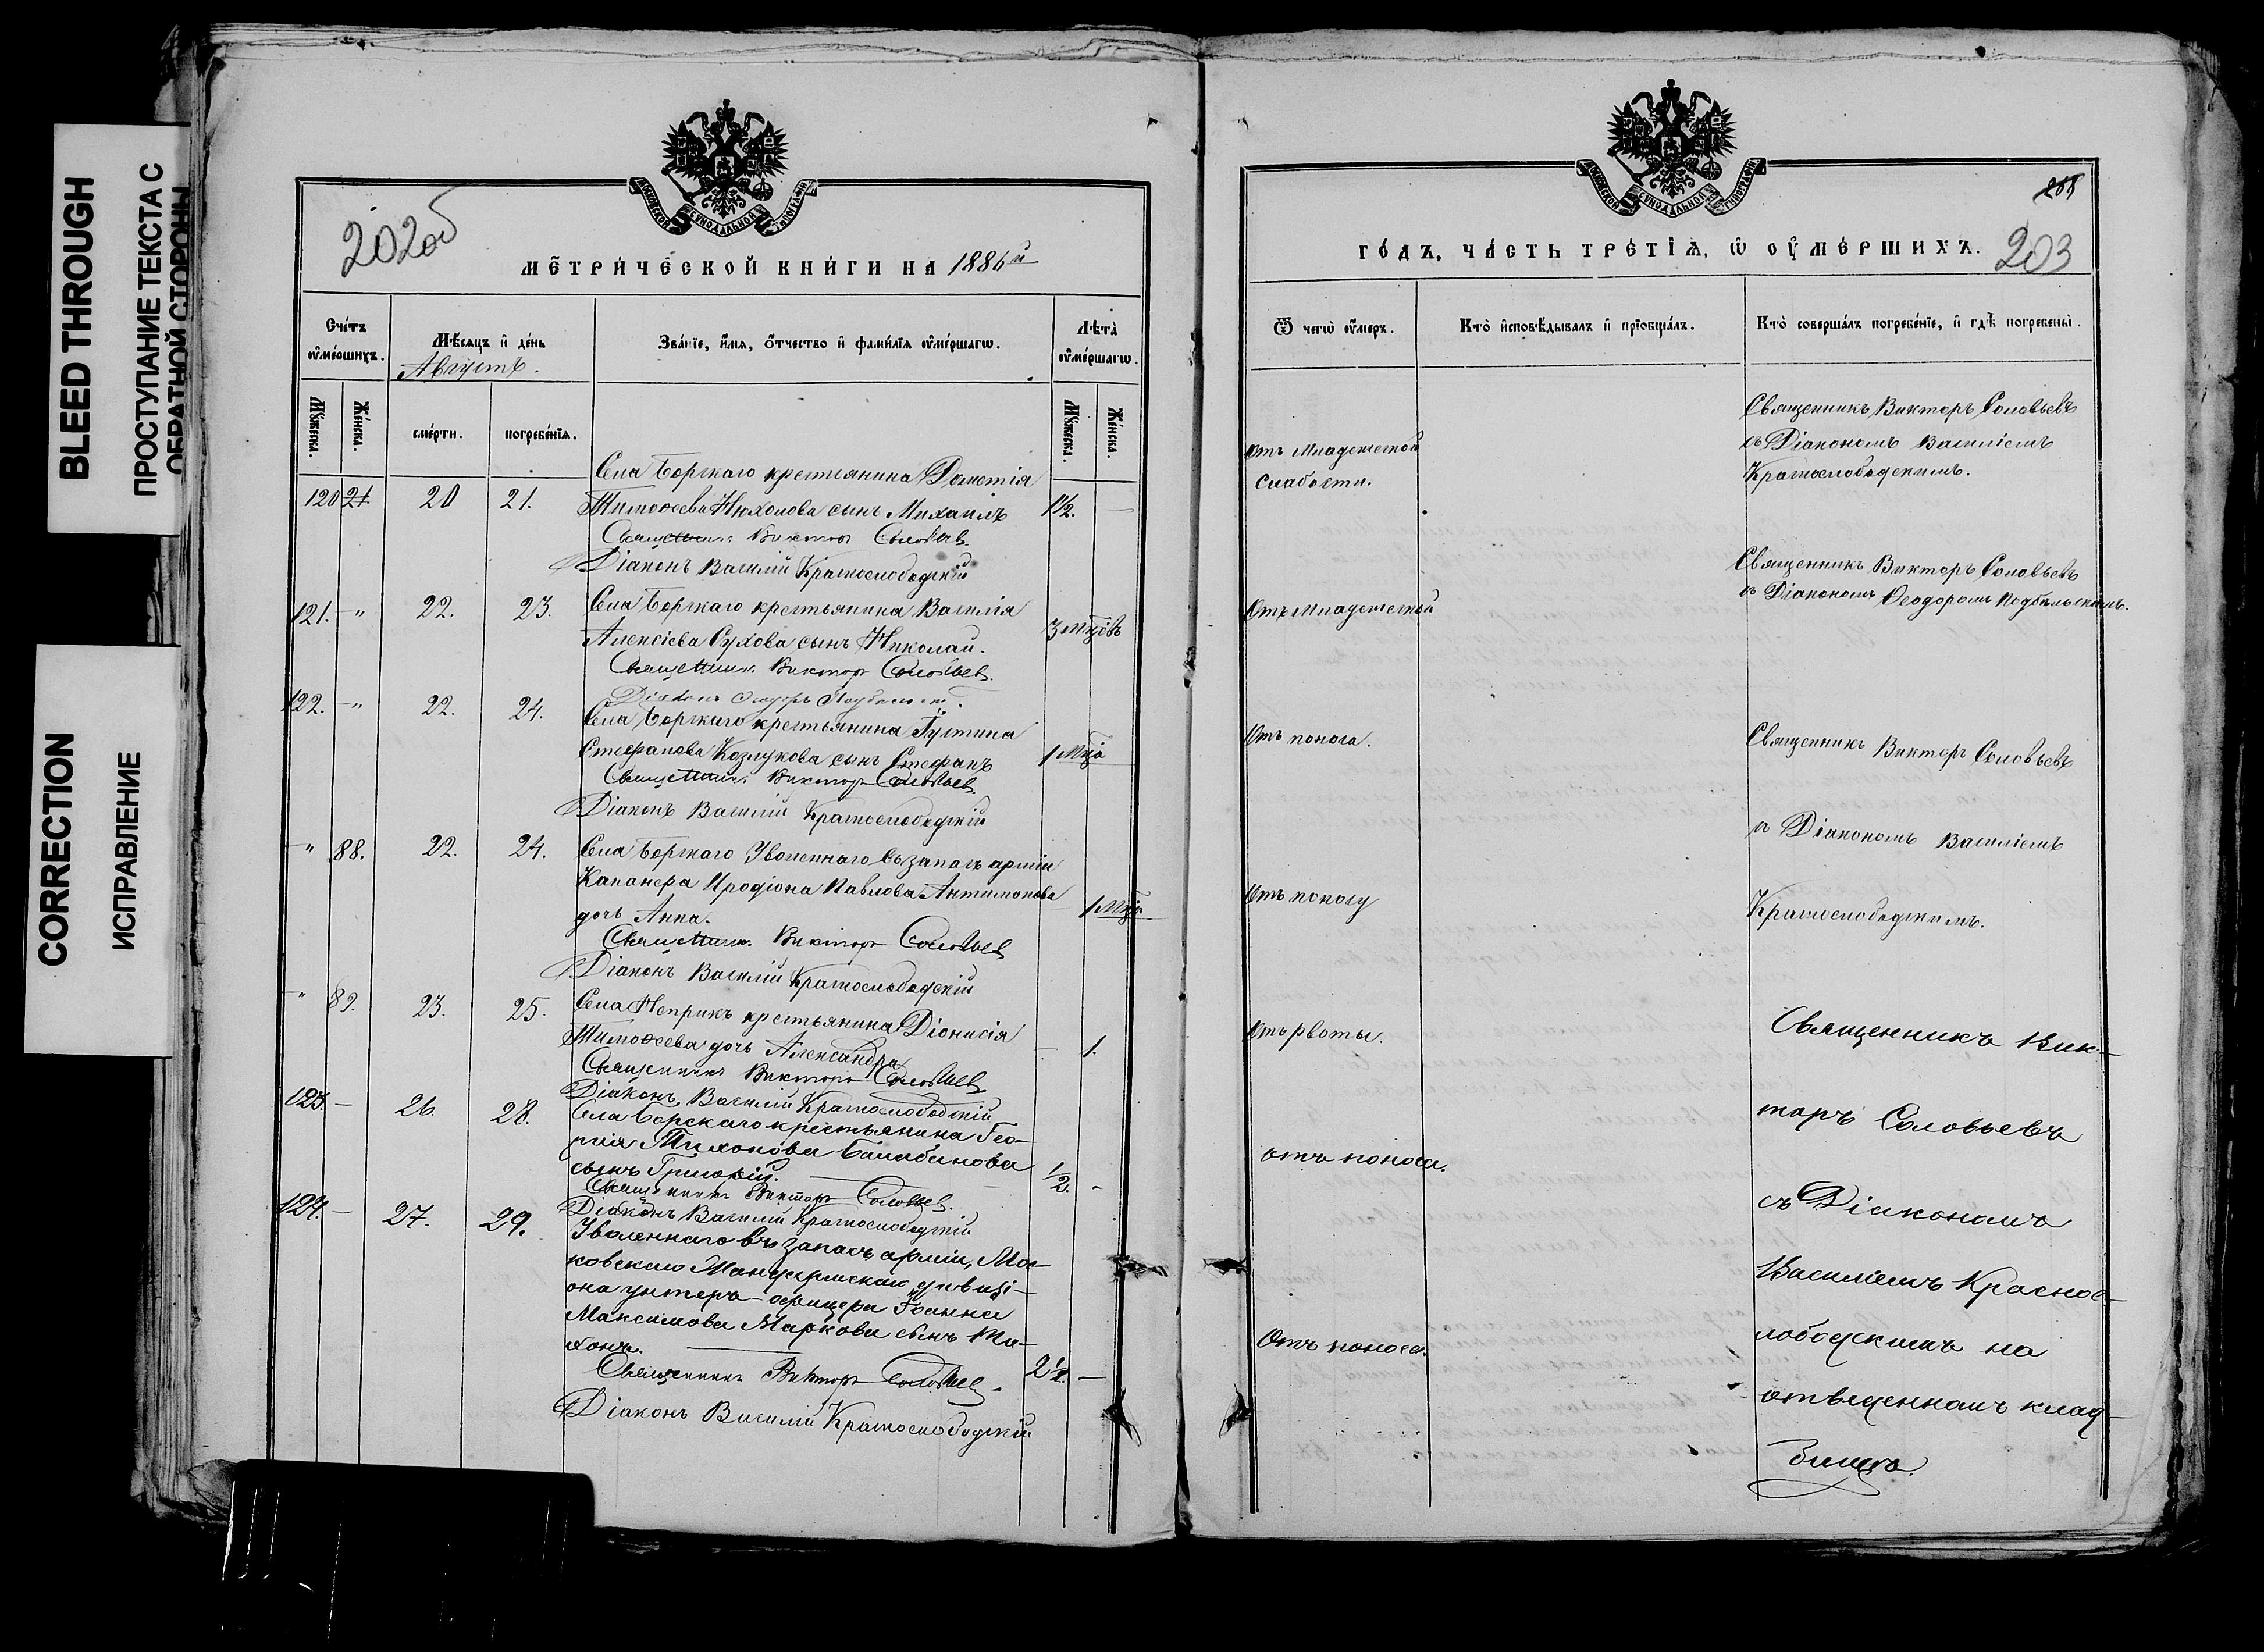 BLEED THROUGH
ПРОСТУПАНИЕ ТЕКСТА С
ОБРАТНОЙ СТОРОНЫ
CORRECTION
ИСПРАВЛЕНИЕ
202об
МОСКОВСКОЙ СѴНОДАЛЬНОЙ ТИПОГРАФІИ
МЕТРИ́ЧЕСКОЙ КНИ́ГИ НА 1886й
Сче́тъ оу҆ме́ршихъ.
Мѣ́сяцъ и҆ де́нь
Августъ.
Зва́нїе, и҆́мя, ѻ҆́тчество и҆ фами́лїя оу҆ме́ршагѡ.
Лѣта̀ оу҆ме́ршагѡ.
Мꙋ́жеска.
Же́нска.
сме́рти.
погребе́нїя.
Мꙋ́жеска.
Же́нска.
Села Борскаго крестьянина Дометія
120 21. 20 21. Тимоѳеева Нюхолова сынъ Михаилъ 1½. —
Священникъ Викторъ Соловьев.
Діаконъ Василій Краснослободскій
121. — " 22. 23. Села Борскаго крестьянина Василія
Алексіева Сухова сынъ Николай. 3 мцовъ
Священникъ Викторъ Соловьев.
Діаконъ Ѳеодоръ Подбельскій.
122. — " 22. 24. Села Борскаго крестьянина Іустина
Стефанова Козлукова сынъ Стефанъ 1 мца
Священникъ Викторъ Соловьев.
Діаконъ Василій Краснослободскій
— " 88. 22. 24. Села Борскаго Уволеннаго въ запасъ арміи
Капанера Иродіона Павлова Антимонова
дочь Анна. 1 мца
Священникъ Викторъ Соловьев
Діаконъ Василій Краснослободскій
— " 89. 23. 25. Села Неприкъ крестьянина Діонисія
Тимоѳеева дочь Александра — 1.
Священникъ Викторъ Соловьев.
Діаконъ Василій Краснослободскій
123. — 26. 28. Села Борскаго крестьянина Гео-
ргія Тихонова Балабанова
сынъ Григорій. ½. -
Священникъ Викторъ Соловьев.
Діаконъ Василій Краснослободскій
124. — 27. 29. Уволеннаго въ запасъ арміи, Мос-
ковскаго Жандармскаго дивизі-
она унтеръ-офицера Іоанна
Максимова Маркова сынъ Ти-
хонъ. 2½. —
Священникъ Викторъ Соловьев.
Діаконъ Василій Краснослободскій
МОСКОВСКОЙ СѴНОДАЛЬНОЙ ТИПОГРАФІИ
ГО́ДЪ, ЧА́СТЬ ТРЕ́ТІѦ, Ѡ ОУ҆МЕ́РШИХЪ. 203
Ѿ чегѡ̀ оу҆́меръ.
Кто̀ и҆сповѣ́дывалъ и҆ прїобща́лъ.
Кто̀ соверша́лъ погребе́нїе, и҆ гдѣ̀ погребены̀.
Отъ младенческой
слабости.
Священникъ Викторъ Соловьевъ
съ Діакономъ Василіемъ
Краснослободскимъ.
Отъ младенческой
Священникъ Викторъ Соловьевъ
съ Діакономъ Ѳеодоромъ Подбельскимъ.
Отъ поноса.
Священникъ Викторъ Соловьевъ
съ Діакономъ Василіемъ
Отъ поносу
Краснослободскимъ.
Отъ рвоты.
Священникъ Вик-
торъ Соловьевъ
отъ поноса.
съ Діакономъ
Василіемъ Краснос-
лободскимъ на
Отъ поноса.
отведенномъ клад-
бищѣ.